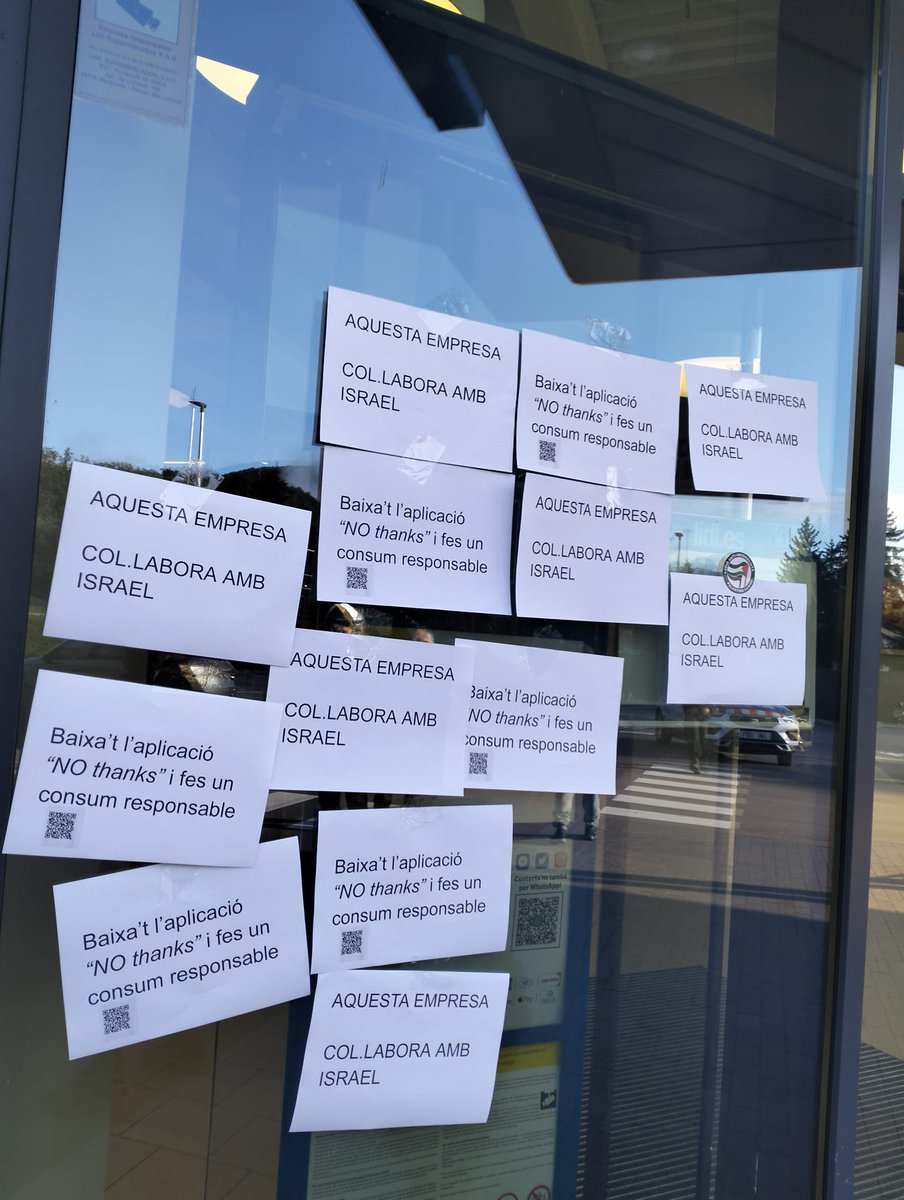 Empresa responsable:
Lidl Supermercados S.A.U
AQUESTA EMPRESA
COL.LABORA AMB
ISRAEL
Baixa't l'aplicació
"NO thanks" i fes un
consum responsable
AQUESTA EMPRESA
COL.LABORA AMB
ISRAEL
AQUESTA EMPRESA
COL.LABORA AMB
ISRAEL
Baixa't l'aplicació
"NO thanks" i fes un
consum responsable
AQUESTA EMPRESA
COL.LABORA AMB
ISRAEL
lidl.es
AQUESTA EMPRESA
COL.LABORA AMB
ISRAEL
Baixa't l'aplicació
"NO thanks" i fes un
consum responsable
AQUESTA EMPRESA
COL.LABORA AMB
ISRAEL
Baixa't l'aplicació
"NO thanks" i fes un
consum responsable
Baixa't l'aplicació
"NO thanks" i fes un
consum responsable
Baixa't l'aplicació
"NO thanks" i fes un
consum responsable
Contacta'ns també
per WhatsApp!
Pay
AQUESTA EMPRESA
COL.LABORA AMB
ISRAEL